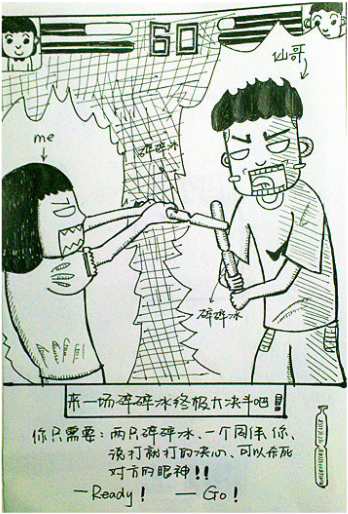 60
仙哥
me
碎碎冰
碎碎冰
来一场碎碎冰终极大决斗吧!!!
你只需要：两只碎碎冰、一个同伴你、
说打就打的决心、可以杀死
对方的眼神!!
—Ready! —Go!